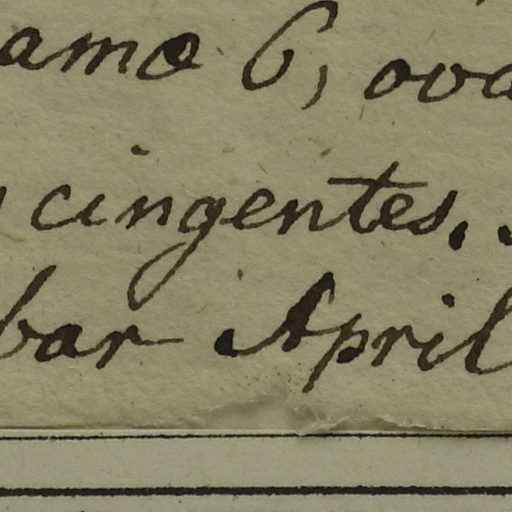 amæ 6, ova
cingentes.
bar April